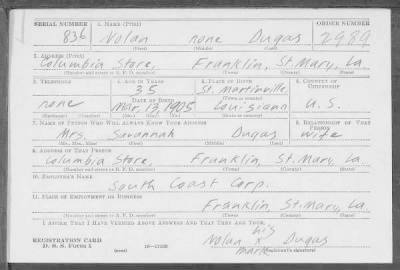 SERIAL NUMBER 1. NAME (Print) ORDER NUMBER
836 Nolan none Dugas 2989
(First) (Middle) (Last)
2. ADDRESS (Print)
Columbia Store, Franklin, St. Mary, La.
(Number and street or R. F. D. number) (Town) (County) (State)
3. TELEPHONE 4. AGE IN YEARS 5. PLACE OF BIRTH 6. COUNTRY OF CITIZENSHIP
35 St. Martinville
DATE OF BIRTH (Town or county)
none Mar 13 1905 Louisiana U.S.
(Exchange) (Number) (Mo.) (Day) (Yr.) (State or country)
7. NAME OF PERSON WHO WILL ALWAYS KNOW YOUR ADDRESS 8. RELATIONSHIP OF THAT PERSON
Mrs. Savannah Dugas wife
(Mr., Mrs., Miss) (First) (Middle) (Last)
9. ADDRESS OF THAT PERSON
Columbia Store, Franklin, St. Mary, La.
(Number and street or R. F. D. number) (Town) (County) (State)
10. EMPLOYER'S NAME
South Coast Corp.
11. PLACE OF EMPLOYMENT OR BUSINESS
Franklin, St. Mary, La.
(Number and street or R. F. D. number) (Town) (County) (State)
I AFFIRM THAT I HAVE VERIFIED ABOVE ANSWERS AND THAT THEY ARE TRUE.
his
REGISTRATION CARD Nolan x Dugas
D. S. S. FORM 1 (over) mark (Registrant's signature)